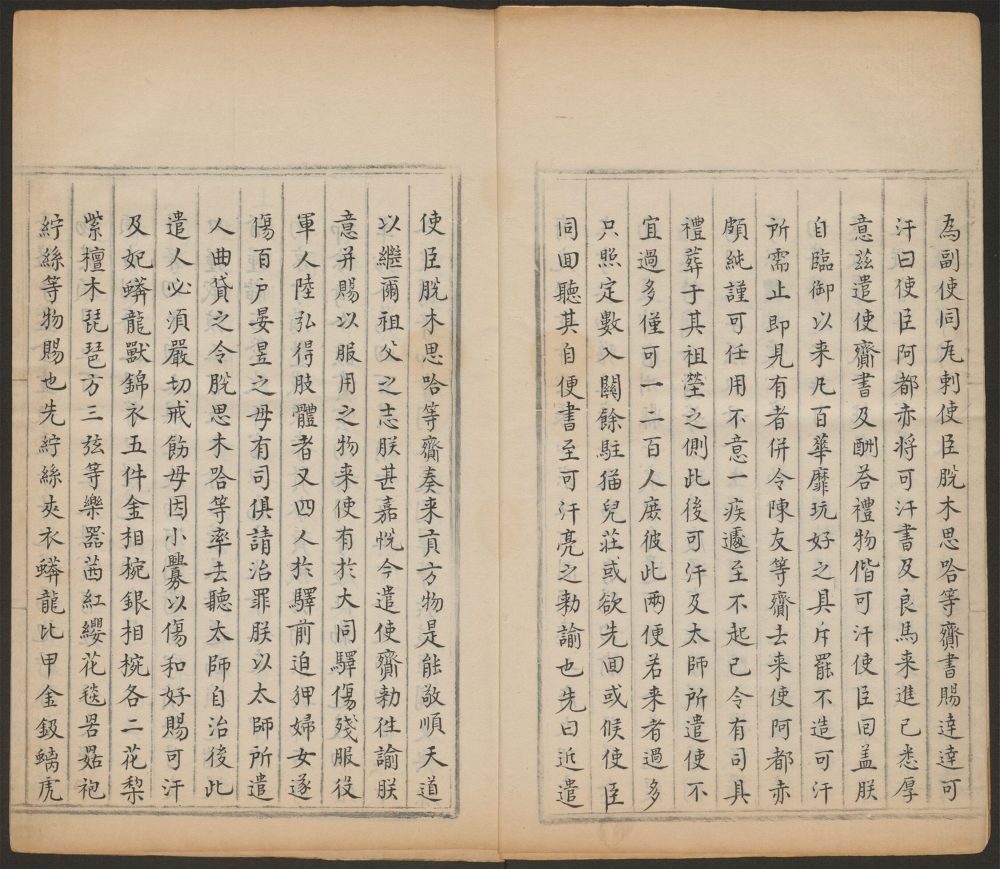 為副使同瓦剌使臣脫木思哈等齎書賜達達可
汗曰使臣阿都赤將可汗書及良馬来進已悉厚
意兹遣使齎書及酬荅禮物偕可汗使臣囘盖朕
自臨御以来凡百華靡玩好之具斥罷不造可汗
所需止即見有者併令陳友等齎去来使阿都赤
頗純謹可任用不意一疾遽至不起已令有司具
禮葬于其祖塋之側此後可汗及太師所遣使不
宜過多僅可一二百人庻彼此兩便若来者過多
只照定數入關餘駐猫兒莊或欲先囬或候使臣
同囬聽其自便書至可汗亮之勑諭也先曰近遣
使臣脫木思哈等齎奏来貢方物是能敬順天道
以繼爾祖父之志朕甚嘉悅今遣使齎勑徃諭朕
意并賜以服用之物来使有於大同驛傷殘服役
軍人陸弘得肢體者又四人於驛前迫狎婦女遂
傷百户晏昱之母有司俱請治罪朕以太師所遣
人曲貸之令脫思木哈等率去聽太師自治後此
遣人必湏嚴切戒飭毋因小釁以傷和好賜可汗
及妃蟒龍獸錦衣五件金相椀銀相椀各二花梨
紫檀木琵琶方三弦等樂器茜紅纓花毯罟罟袍
紵絲等物賜也先紵絲夾衣蟒龍比甲金鈒螭虎